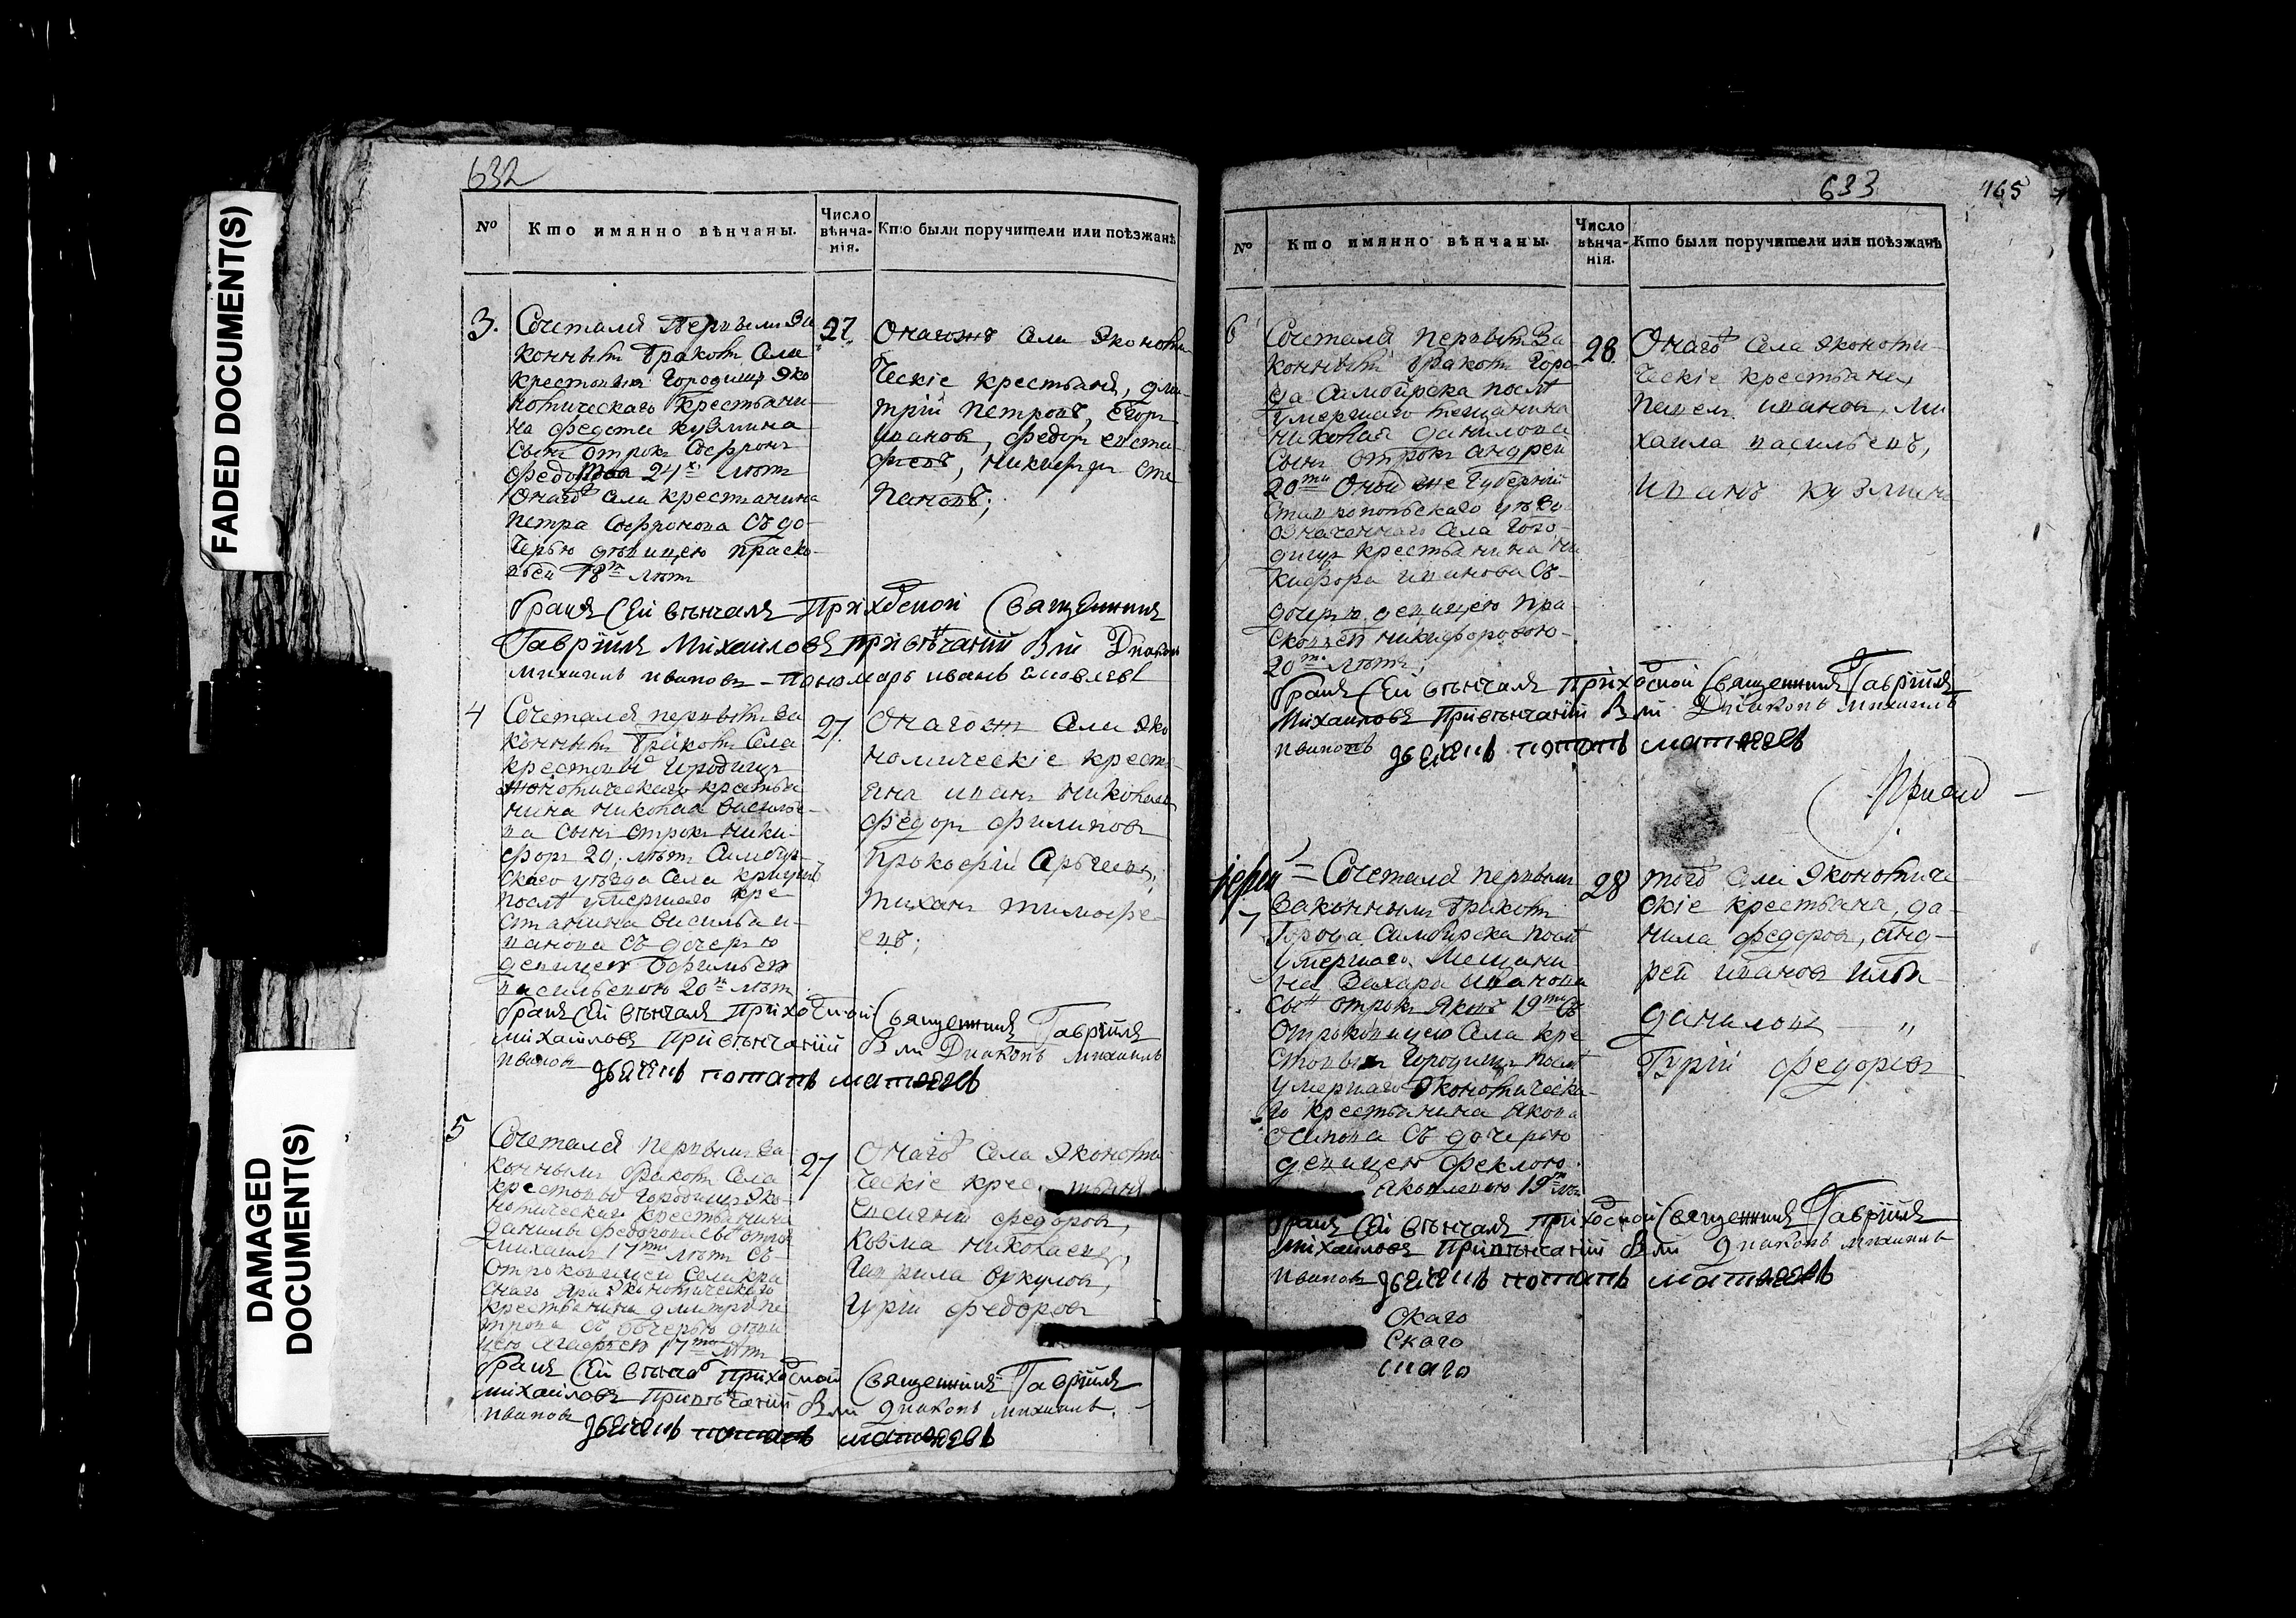 FADED DOCUMENT(S)
DAMAGED
DOCUMENT(S)
632
№ Кто имянно вѣнчаны. Число вѣнча-нія. Кто были поручители или поѣзжанѣ
3.
Сочетался Первымъ За
коннымъ бракомъ Села
крестовыхъ Городищъ Эко
номическаго крестьяни-
на федота Кузмина
сынъ отрокъ Софронъ
24 лѣтъ
Онагожъ села крестьянина
петра Софронова Съ до-
черью дѣвицею праско-
18 лѣтъ
27
Онагожъ Села Экономи
ческіе крестьяня, дми-
трій петровъ, Егоръ
ивановъ, федоръ
никифоръ сте
пановъ;
бракъ Сей вѣнчалъ Приходской Священникъ
Гавріилъ Михаиловъ при вѣнчаніи Были Дьяконъ
михаилъ ивановъ – пономарь иванъ
4
Сочетался первымъ за
коннымъ бракомъ Села
крестовыхъ городищъ
экономическаго крестья
нина николая василье-
ва сынъ отрокъ ники-
форъ 20. лѣтъ Симбир-
скаго уѣзда Села
послѣ умершаго кре
стьянина василья и-
ванова съ дочерью
девицею
васильевою 20 лѣтъ
27.
Онагожъ Села Эко
номическіе кресть-
яня иванъ николаевъ
федоръ филиповъ
прокофій
тиханъ тимофе-
евъ;
бракъ Сей вѣнчалъ приходской Священникъ Гавріилъ
михаиловъ при вѣнчаніи Были Дьяконъ михаилъ
ивановъ дьячекъ потапъ матвеевъ
5
Сочетался первымъ за-
коннымъ бракомъ Села
крестовыхъ городищъ Эко-
номическаго крестьянина
данилы федорова сынъ отрокъ
михаилъ 17 лѣтъ съ
отроковицей Села кра
снаго яра Экономическаго
крестьянина дмитрія пе
трова съ дочерью дѣви
цею 17 лѣтъ
27
Онагожъ Села Экономи
ческіе крестьяня
федоровъ,
козма николаевъ,
гаврила викуловъ,
гурій федоровъ
бракъ Сей вѣнчалъ приходской Священникъ Гавріилъ
михаиловъ при вѣнчаніи Были дьяконъ михаилъ
ивановъ дьячекъ потапъ матвеевъ
633
165
№ Кто имянно вѣнчаны. Число вѣнча-нія. Кто были поручители или поѣзжанѣ
6
Сочетался первымъ За
коннымъ бракомъ Горо
да Симбирска послѣ
умершаго мещанина
николая данилова
сынъ отрокъ андрей
20 Оной же Губерніи
Ставропольскаго уѣзда
означеннаго Села Горо-
дищъ крестьянина ни
кифора иванова Съ-
дочерью девицею пра-
сковьей никифоровою-
20 лѣтъ;
28
Онагожъ Села Экономи-
ческіе крестьяня,
павелъ ивановъ, ми
хаила васильевъ,
иванъ кузминъ
бракъ Сей вѣнчалъ Приходской Священникъ Гавріилъ
Михаиловъ При вѣнчаніи Были Дьяконъ михаилъ
ивановъ дьячекъ потапъ матвеевъ
7
Сочетался первымъ
законнымъ бракомъ
Города Симбирска послѣ
умершаго Мещани-
на Захара Иванова
сынъ отрокъ Яковъ 19 съ
отроковицею Села кре
стовыхъ Городищъ послѣ
умершаго Экономическа-
го крестьянина Якова
осипова съ дочерью
девицею феклою
Яковлевою 19 лѣтъ
28
тогожъ села Экономиче
скіе крестьяня, да-
нила федоровъ, анд-
рей ивановъ илья
даниловъ "
Гурій федоровъ
бракъ Сей вѣнчалъ приходской Священникъ Гавріилъ
Михаиловъ При вѣнчаніи Были дьяконъ михаилъ
ивановъ дьячекъ потапъ матвеевъ
скаго
скаго